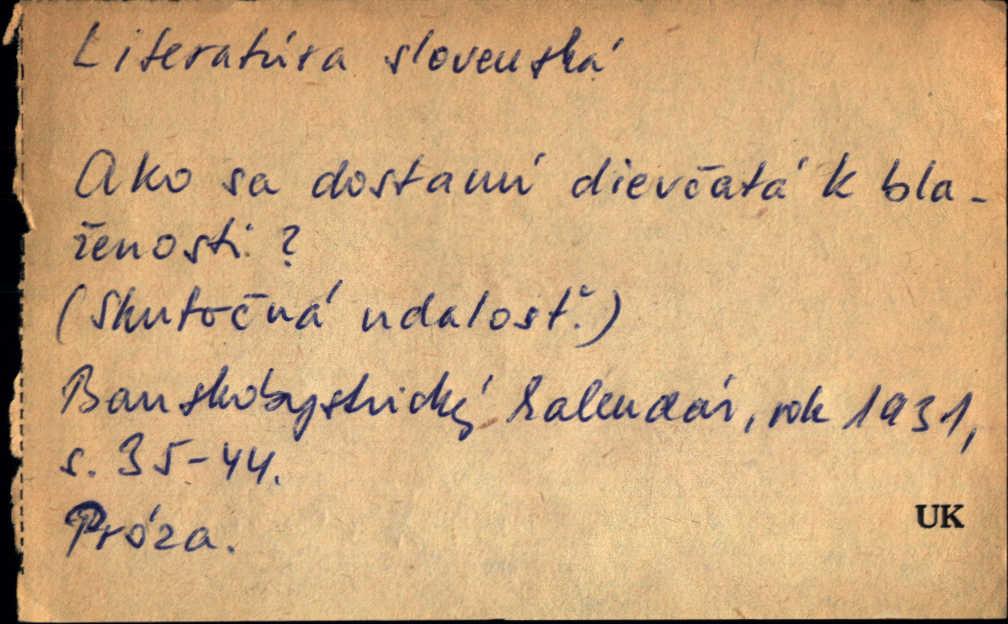 Literatúra slovenská
Ako sa dostanú dievčatá k bla-
ženosti?
(Skutočná udalosť.)
Banskobystrický kalendár, rok 1931,
s. 35-44.
Próza.
UK